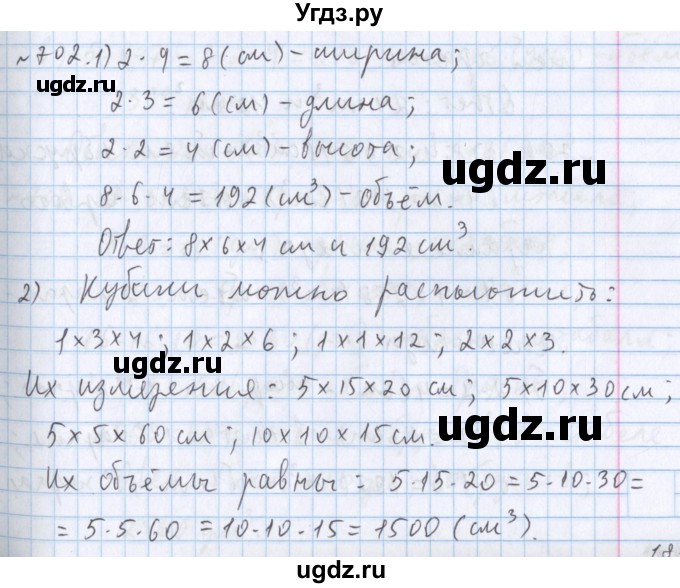 Угдз.ру
№702.1) 2·4 = 8 (см) - ширина;
ugdz.ru
2·3 = 6 (см) - длина;
2·2 = 4 (см) - высота;
ugdz.ru
8·6·4 = 192 (см³) - объём.
Ответ: 8×6×4 см и 192 см³.
2) Кубики можно расположить:
1×3×4; 1×2×6; 1×1×12; 2×2×3.
ugdz.ru
Их измерения: 5×15×20 см; 5×10×30 см;
5×5×60 см; 10×10×15 см.
ugdz.ru
Их объёмы равны: 5·15·20 = 5·10·30 =
= 5·5·60 = 10·10·15 = 1500 (см³).
ugdz.ru
18